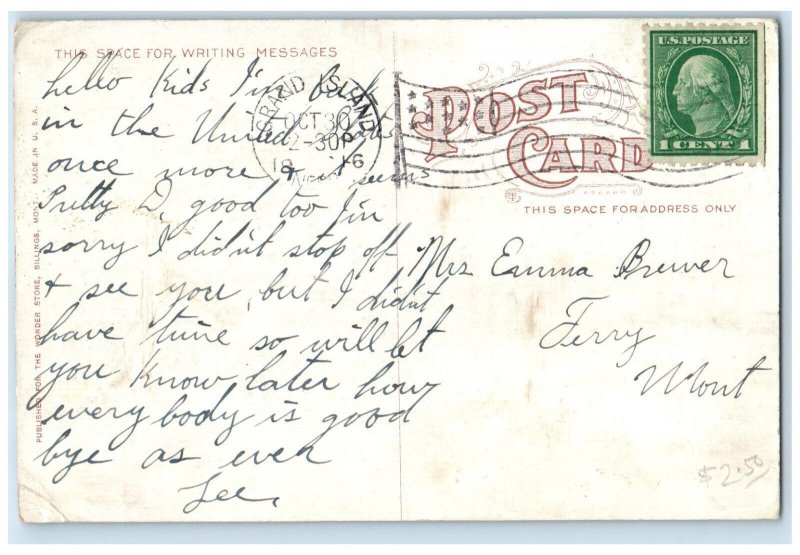 THIS SPACE FOR WRITING MESSAGES
hello Kids I'm back
in the United States
once more & it seems
Pretty D, good too I'm
sorry I didn't stop off
& see you, but I didn't
have time so will let
you know later how
everybody is good
bye as ever
Lee,
PUBLISHED FOR THE WONDER STORE, BILLINGS, MONT. MADE IN U. S. A.
GRAND ISLAND
OCT 30
2-30P
POST
CARD
THIS SPACE FOR ADDRESS ONLY
U.S. POSTAGE
1 CENT 1
Mrs Emma Brewer
Terry
Mont
$2.50